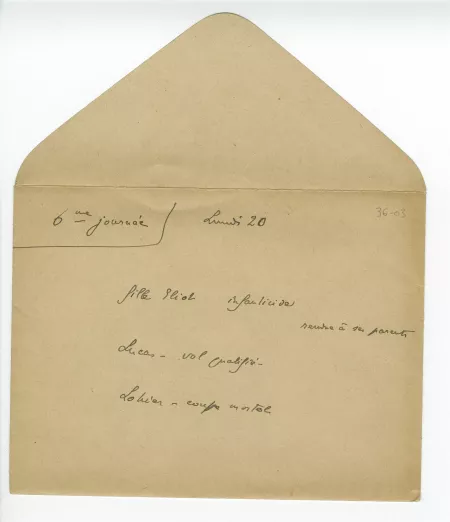 6me journée Lundi 20
36-03
fille Eliot infanticide
rendue à ses parents
Lucas - vol qualifié -
Lohier - coups mortels